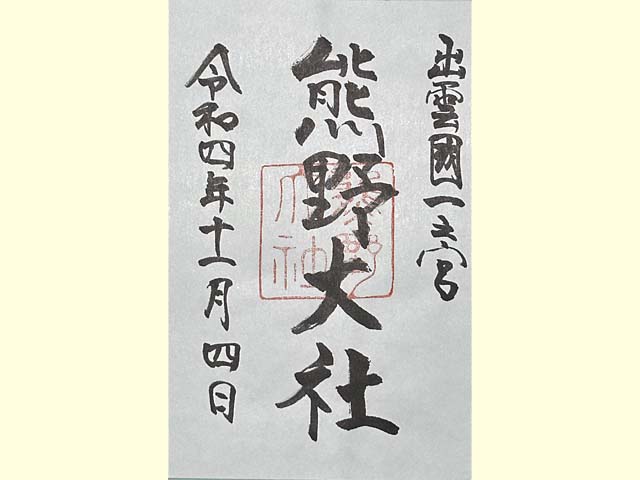 出雲國一之宮
熊野大社
令和四年十一月四日
熊野大社